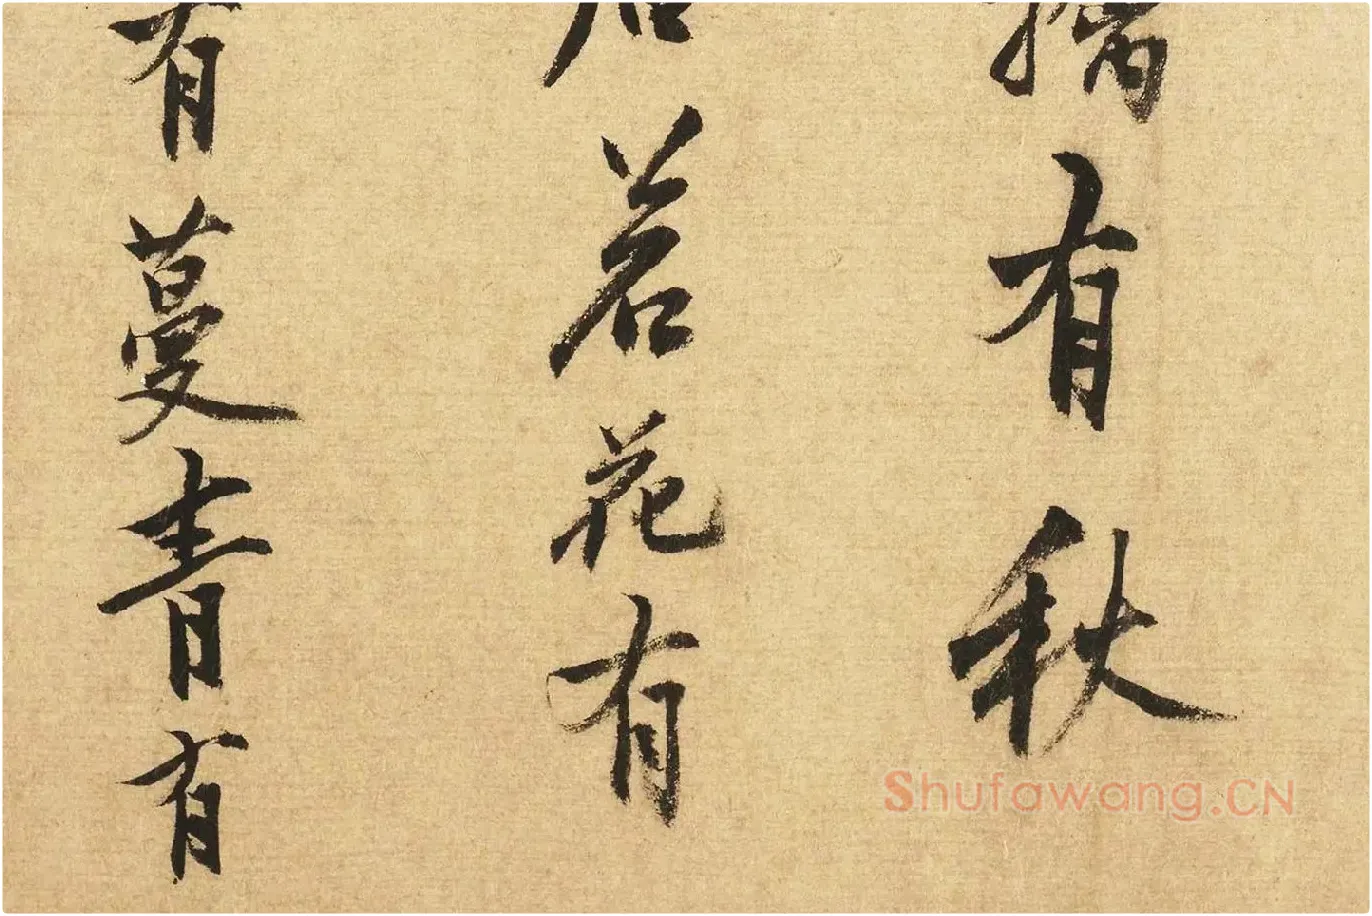 有秋
若花有
有蔓青有
Shufawang.CN